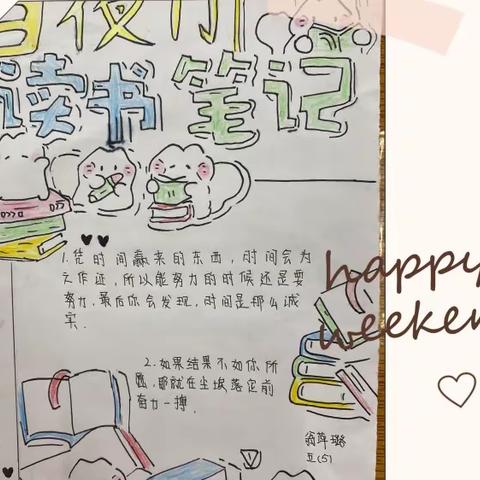 白夜行
阅读书
笔记
1.凭时间赢来的东西,时间会为
之作证,所以能努力的时候还是要
努力,最后你会发现,时间是那么诚
实.
2.如果结果不如你所
愿,那就在尘埃落定前
奋力一搏.
五(5)
happy
weeken